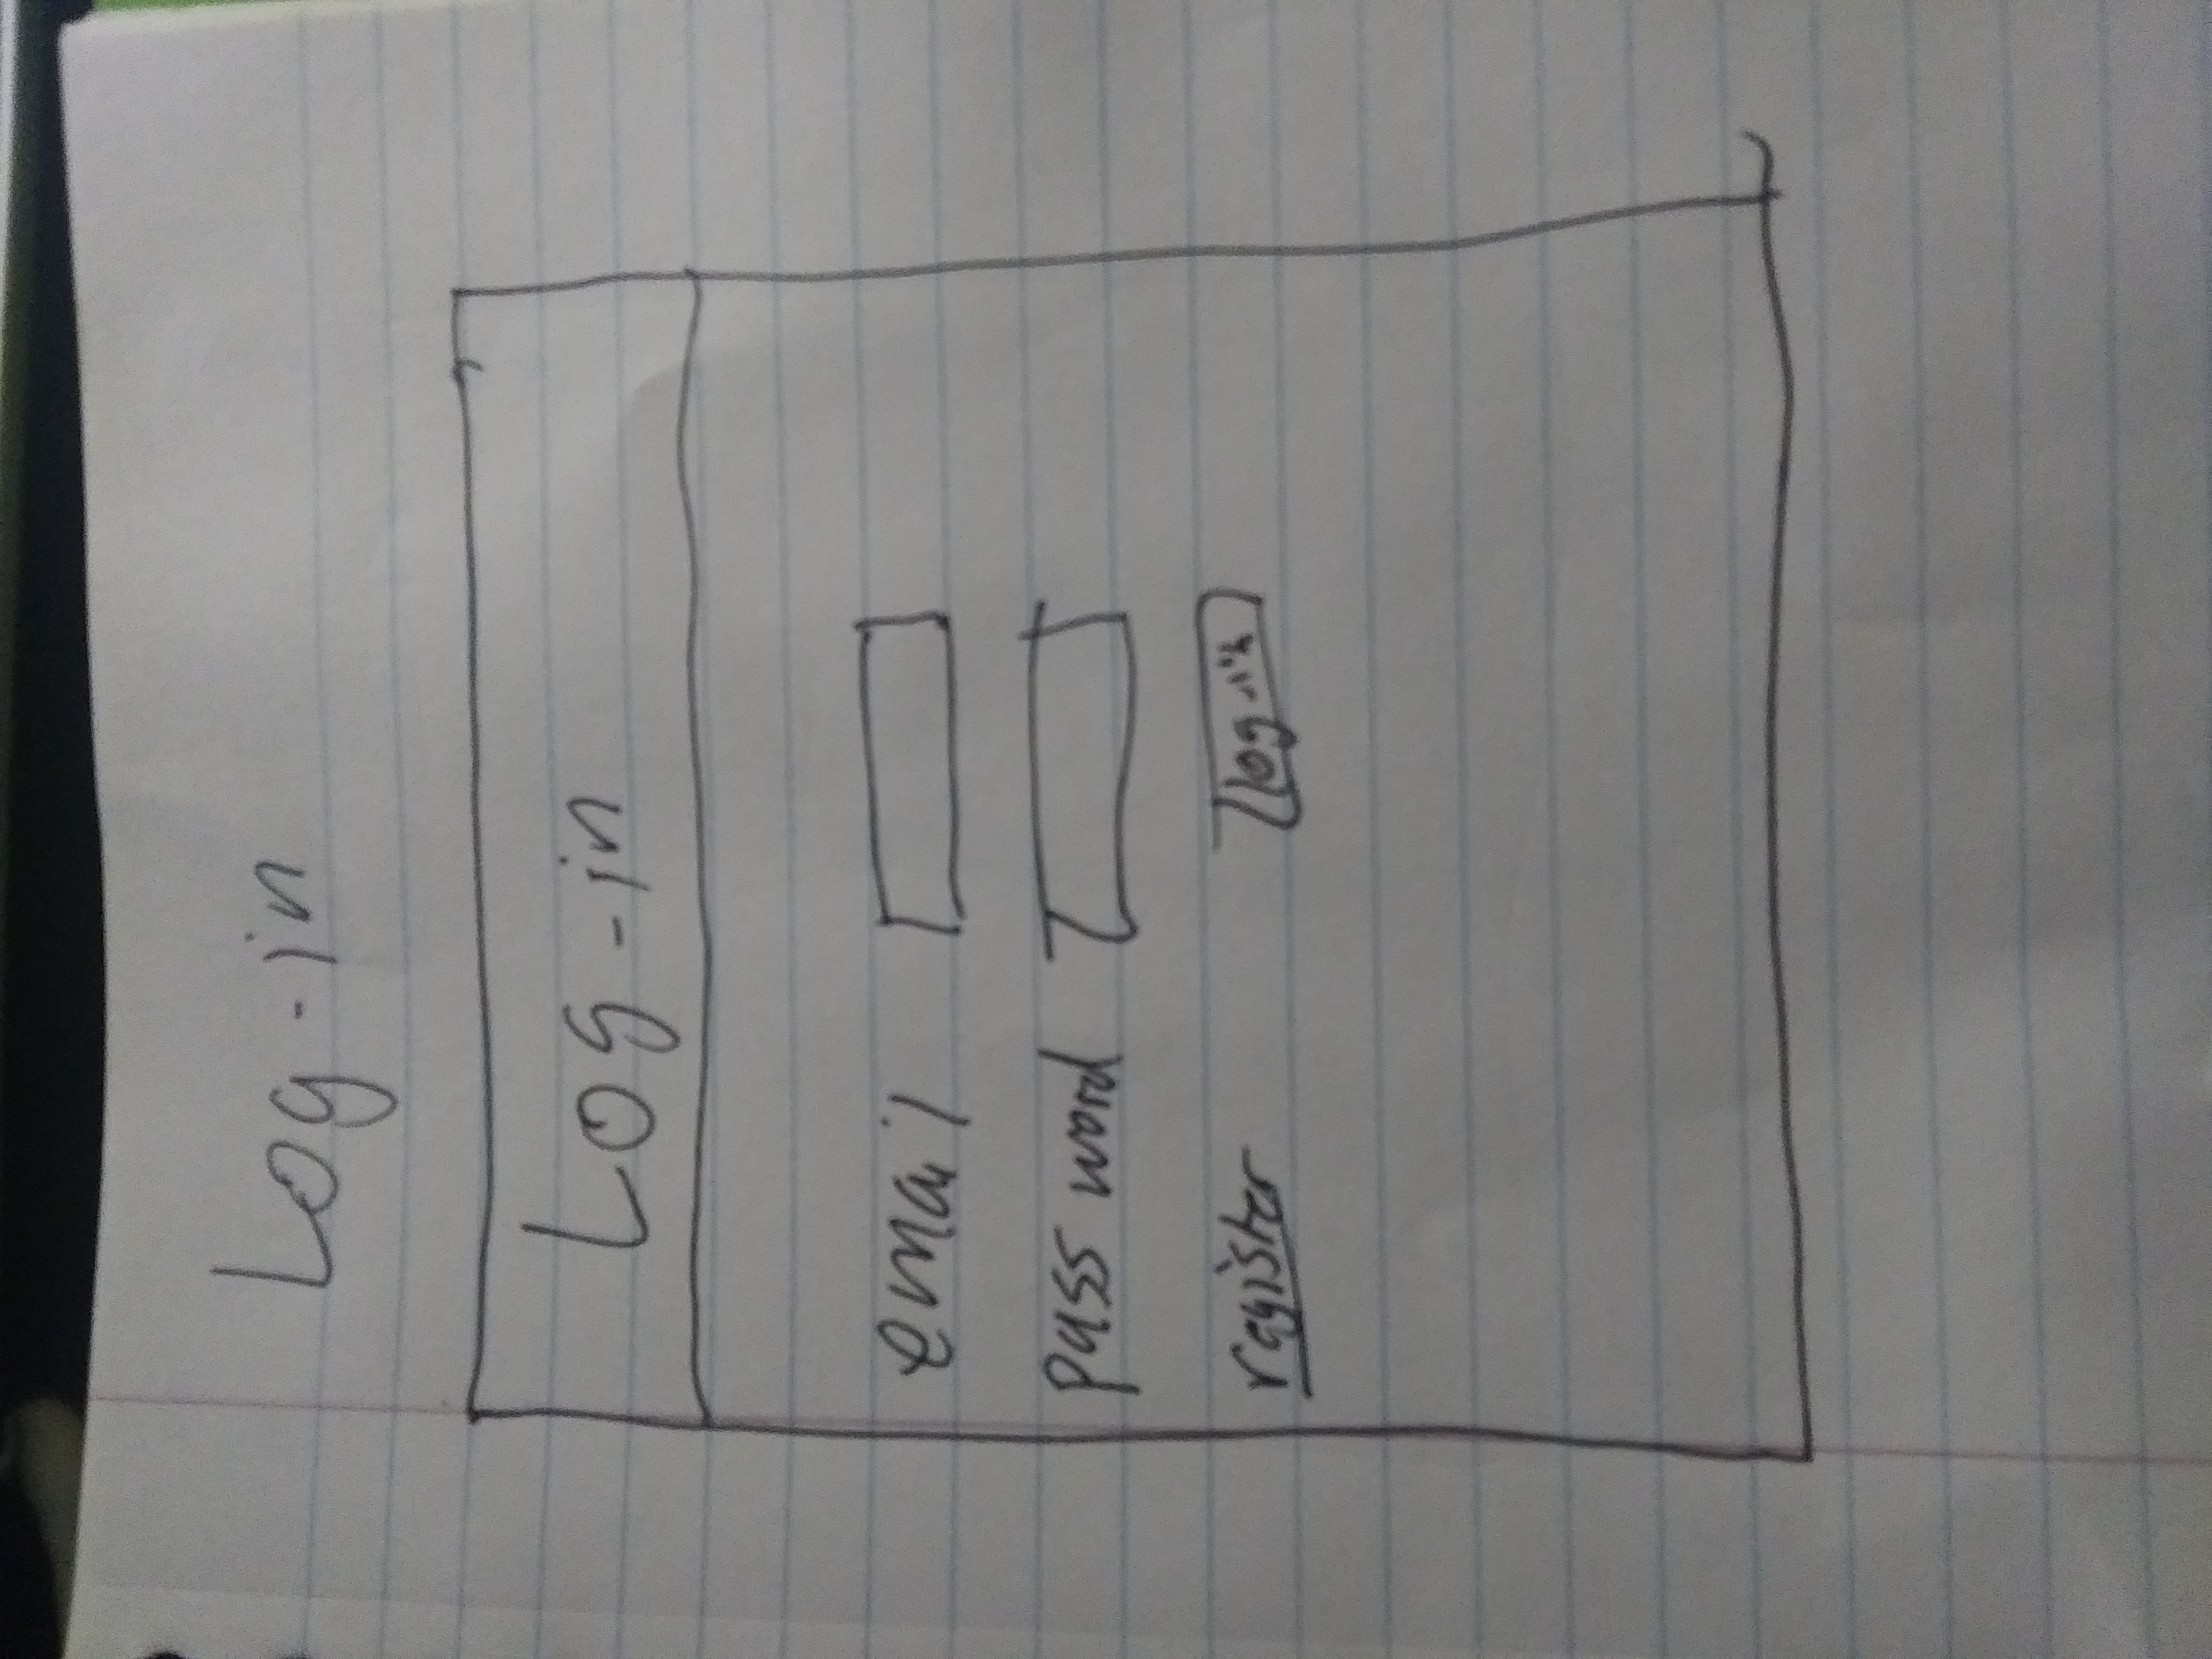 Log-in
Log-in
email
pass word
register log-in